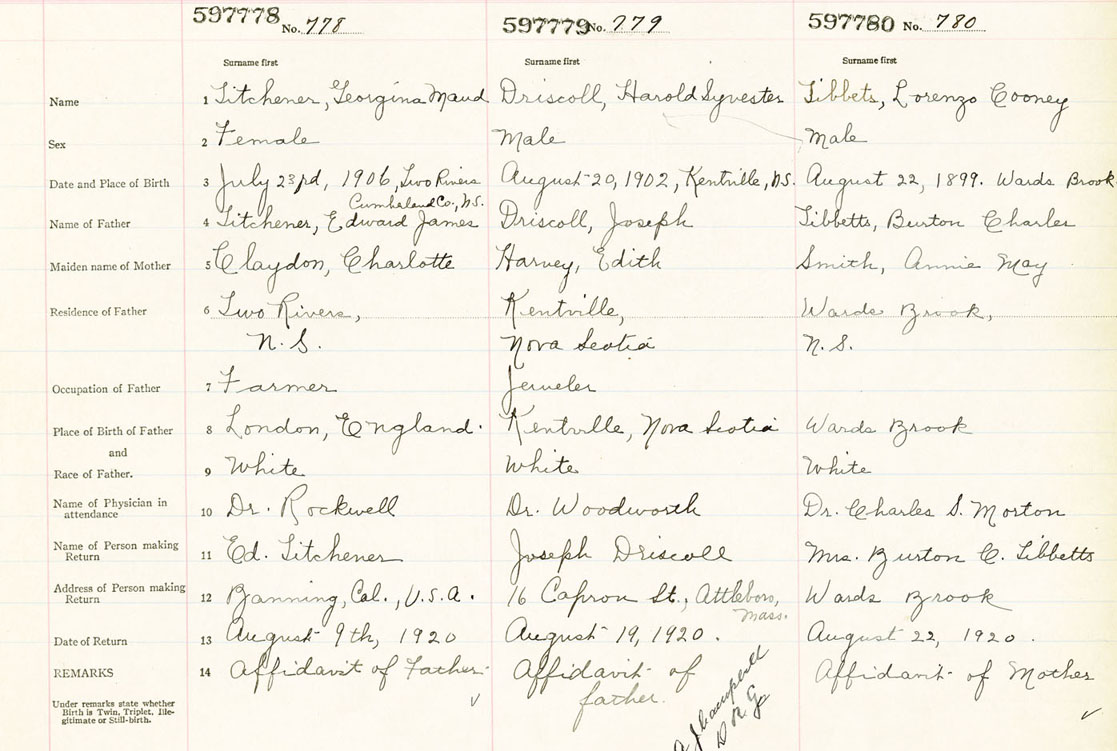 597778 No. 778 597779 No. 779 597780 No. 780
Surname first Surname first Surname first
Name 1 Titchener, Georgina Maud Driscoll, Harold Syvester Tibbets, Lorenzo Cooney
Sex 2 Female Male Male
Date and Place of Birth 3 July 23rd, 1906, Two Rivers August 20, 1902, Kentville, N.S. August 22, 1899. Wards Brook
Cumberland Co., N.S.
Name of Father 4 Titchener, Edward James Driscoll, Joseph Tibbetts, Burton Charles
Maiden name of Mother 5 Claydon, Charlotte Harvey, Edith Smith, Annie May
Residence of Father 6 Two Rivers, Kentville, Wards Brook,
N.S. Nova Scotia N.S.
Occupation of Father 7 Farmer Jeweler
Place of Birth of Father 8 London, England. Kentville, Nova Scotia Wards Brook
and
Race of Father. 9 White White White
Name of Physician in
attendance 10 Dr. Rockwell Dr. Woodworth Dr. Charles S. Morton
Name of Person making
Return 11 Ed. Titchener Joseph Driscoll Mrs. Burton C. Tibbetts
Address of Person making
Return 12 Banning, Cal., U.S.A. 16 Capron St., Attleboro, Wards Brook
Mass.
Date of Return 13 August 9th, 1920 August 19, 1920. August 22, 1920.
REMARKS 14 Affidavit of Father Affidavit of Affidavit of Mother
father.
Under remarks state whether
Birth is Twin, Triplet, Ille-
gitimate or Still-birth.
Campbell
D R G